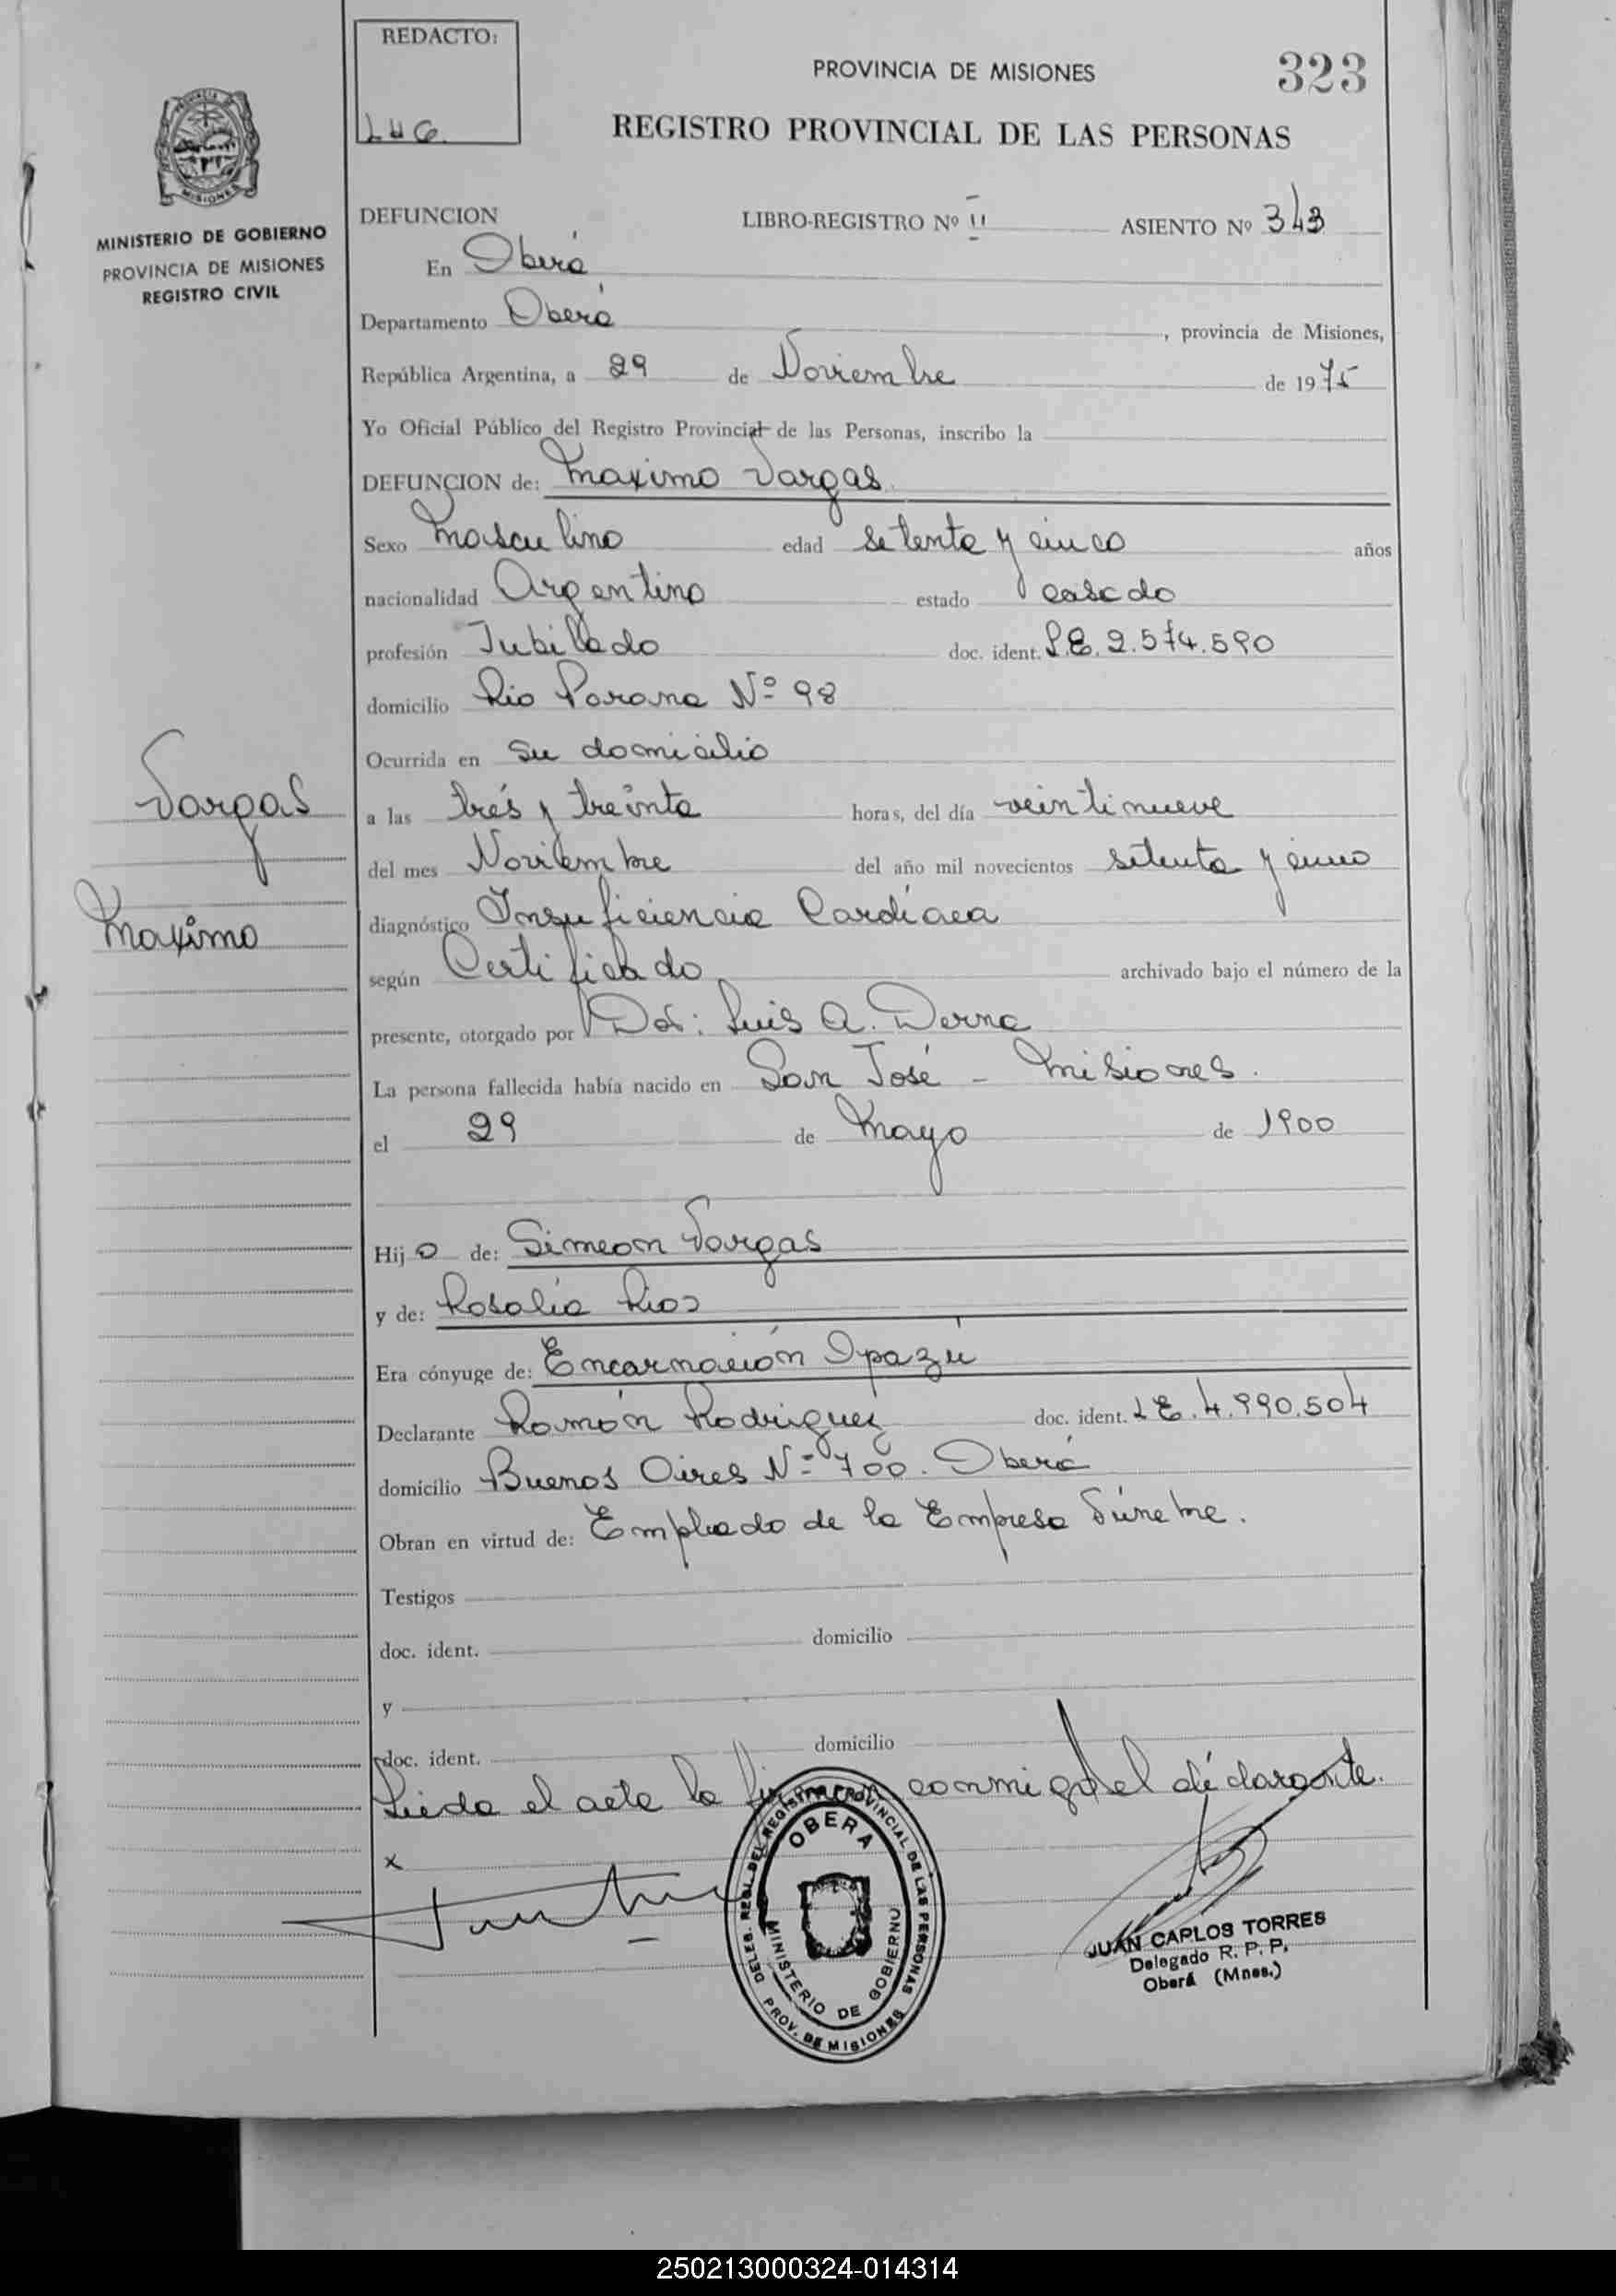 REDACTO:
L H G.
PROVINCIA DE MISIONES
323
REGISTRO PROVINCIAL DE LAS PERSONAS
MISIONES
MINISTERIO DE GOBIERNO
PROVINCIA DE MISIONES
REGISTRO CIVIL
DEFUNCION LIBRO-REGISTRO Nº II ASIENTO Nº 343
En Oberá
Departamento Oberá, provincia de Misiones,
República Argentina, a 29 de Noviembre de 1975
Yo Oficial Público del Registro Provincial de las Personas, inscribo la
DEFUNCION de: Maximo Vargas.
Sexo Masculino edad setenta y cinco años
nacionalidad Argentino estado casado
profesión Jubilado doc. ident. L.E. 2.574.590
domicilio Rio Parana Nº 98
Ocurrida en su domicilio
a las trés y treinta horas, del día veintinueve
del mes Noviembre del año mil novecientos setenta y cinco
diagnóstico Insuficiencia Cardíaca
según Certificado archivado bajo el número de la
presente, otorgado por Luis A. Derna
La persona fallecida había nacido en San José - Misiones.
el 29 de Mayo de 1900
Hijo de: Simeon Vargas
y de: Rosalia Rios
Era cónyuge de: Encarnación Opazú
Declarante Ramón Rodriguez doc. ident. L E. 4.990.504
domicilio Buenos Aires Nº 700. Oberá
Obran en virtud de: Empleado de la Empresa Fúnebre.
Testigos
doc. ident. domicilio
y
doc. ident. domicilio
Leida el acta la firma conmigo el déclarante.
x
Vargas
Maximo
DELEG. REGL. DEL REGISTRO PROVINCIAL DE LAS PERSONAS
OBERA
MINISTERIO DE GOBIERNO
PROV. DE MISIONES
JUAN CARLOS TORRES
Delegado R. P. P.
Oberá (Mnes.)
250213000324-014314